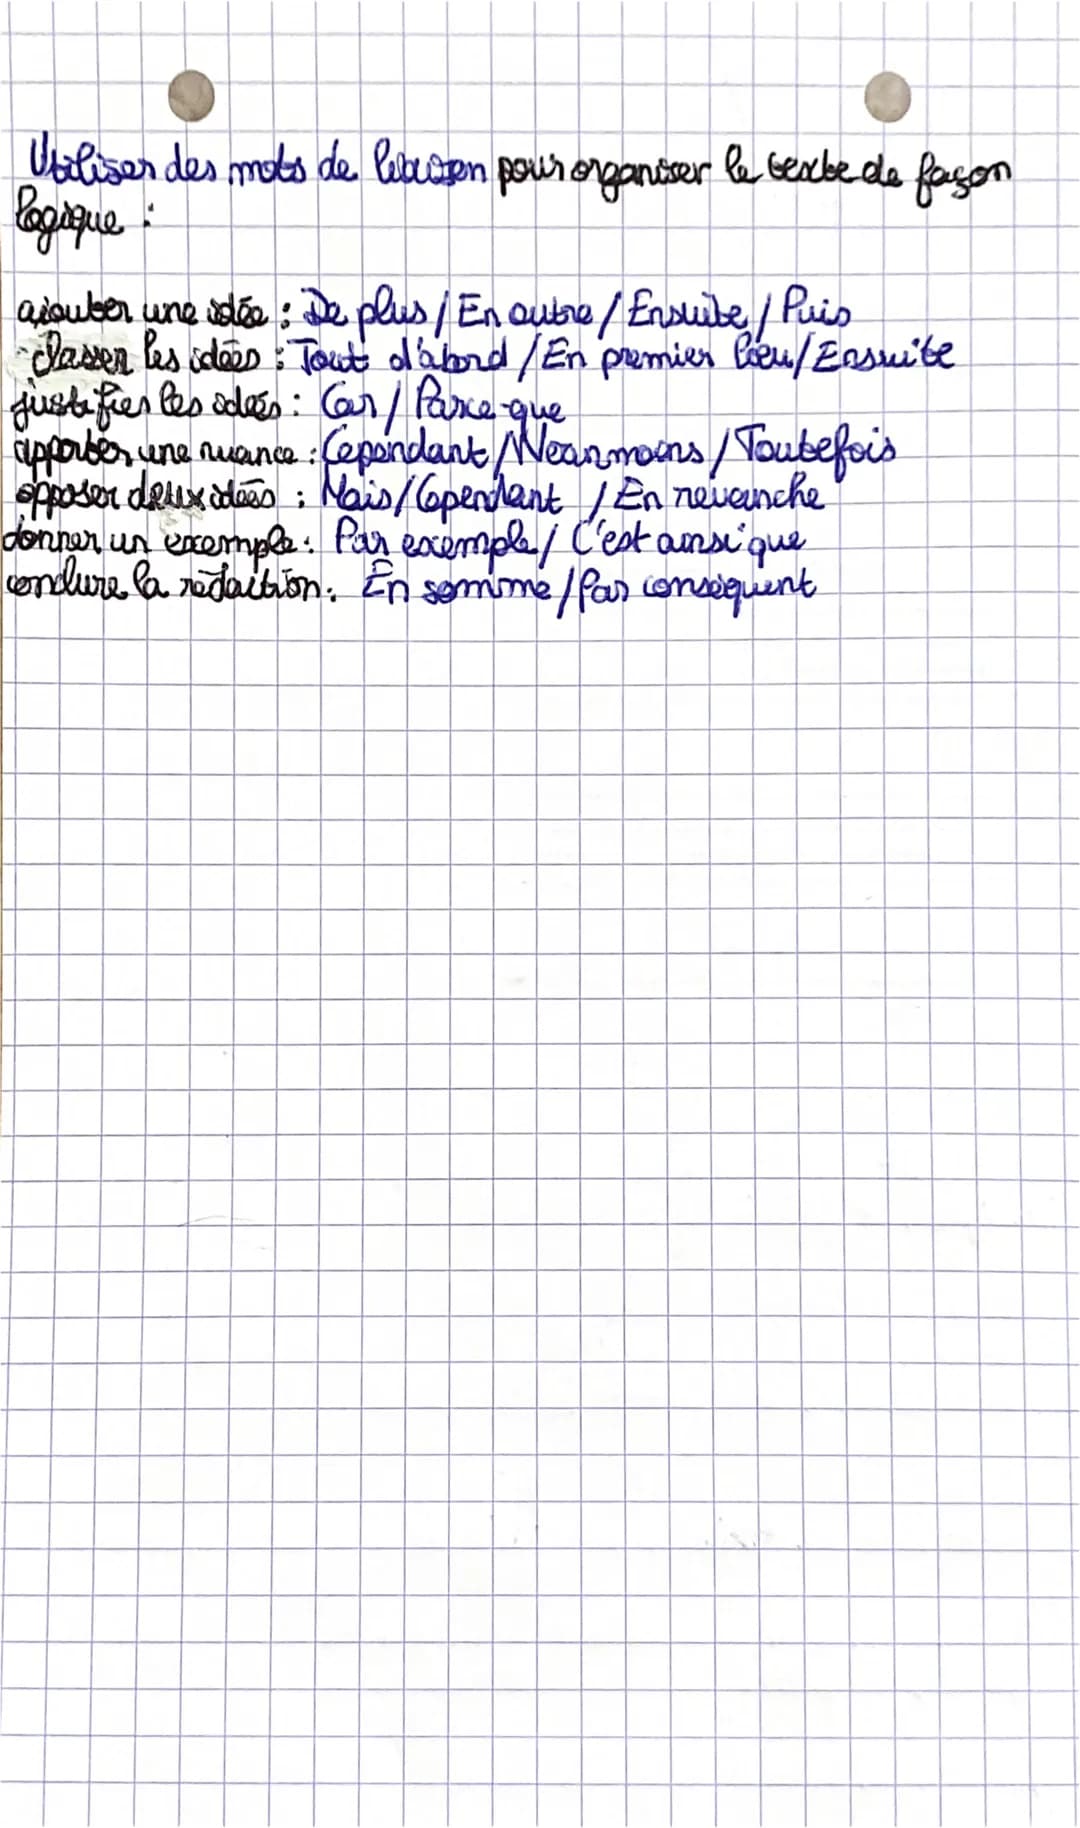 Utiliser des mots de liaison pour organiser le texte de façon
logique :
ajouter une idée : De plus / En outre / Ensuite / Puis
classer les idées : Tout d'abord / En premier lieu / Ensuite
justifier les idées : Car / Parce-que
apporter une nuance : Cependant / Neanmoins / Toutefois
opposer deux idées : Mais / Cependant / En revanche
donner un exemple : Par exemple / C'est ainsi que
conclure la rédaction : En somme / Par conséquent